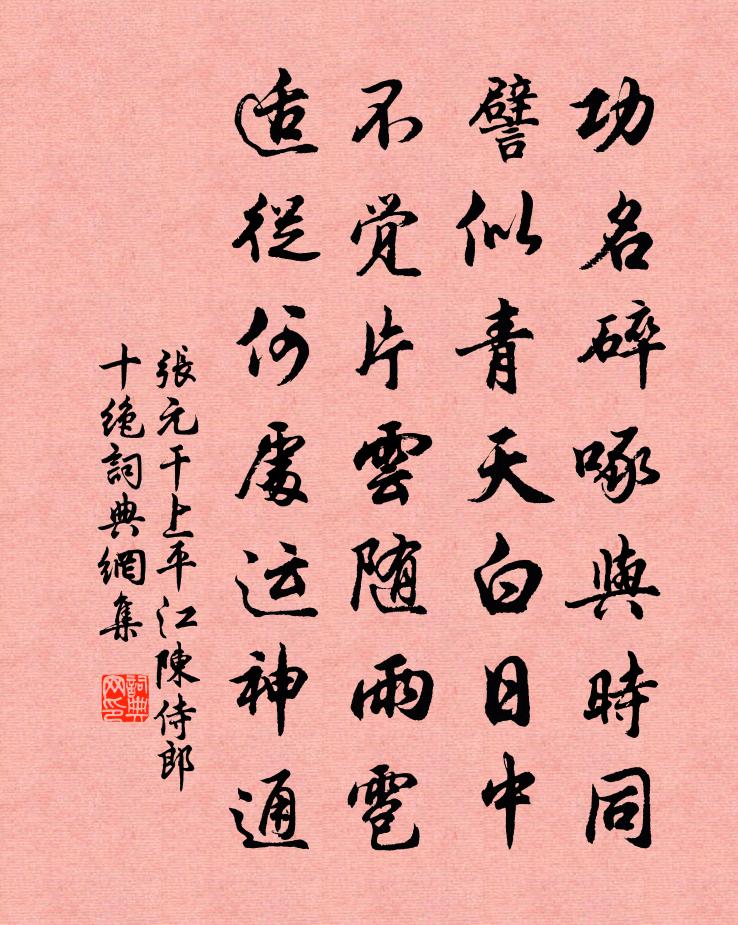 功名碎啄與時同
譬似青天白日中
不覚片雲随雨雹
适從何處运神通
張元干上平江陳侍郎
十绝詞典網集
詞典
网